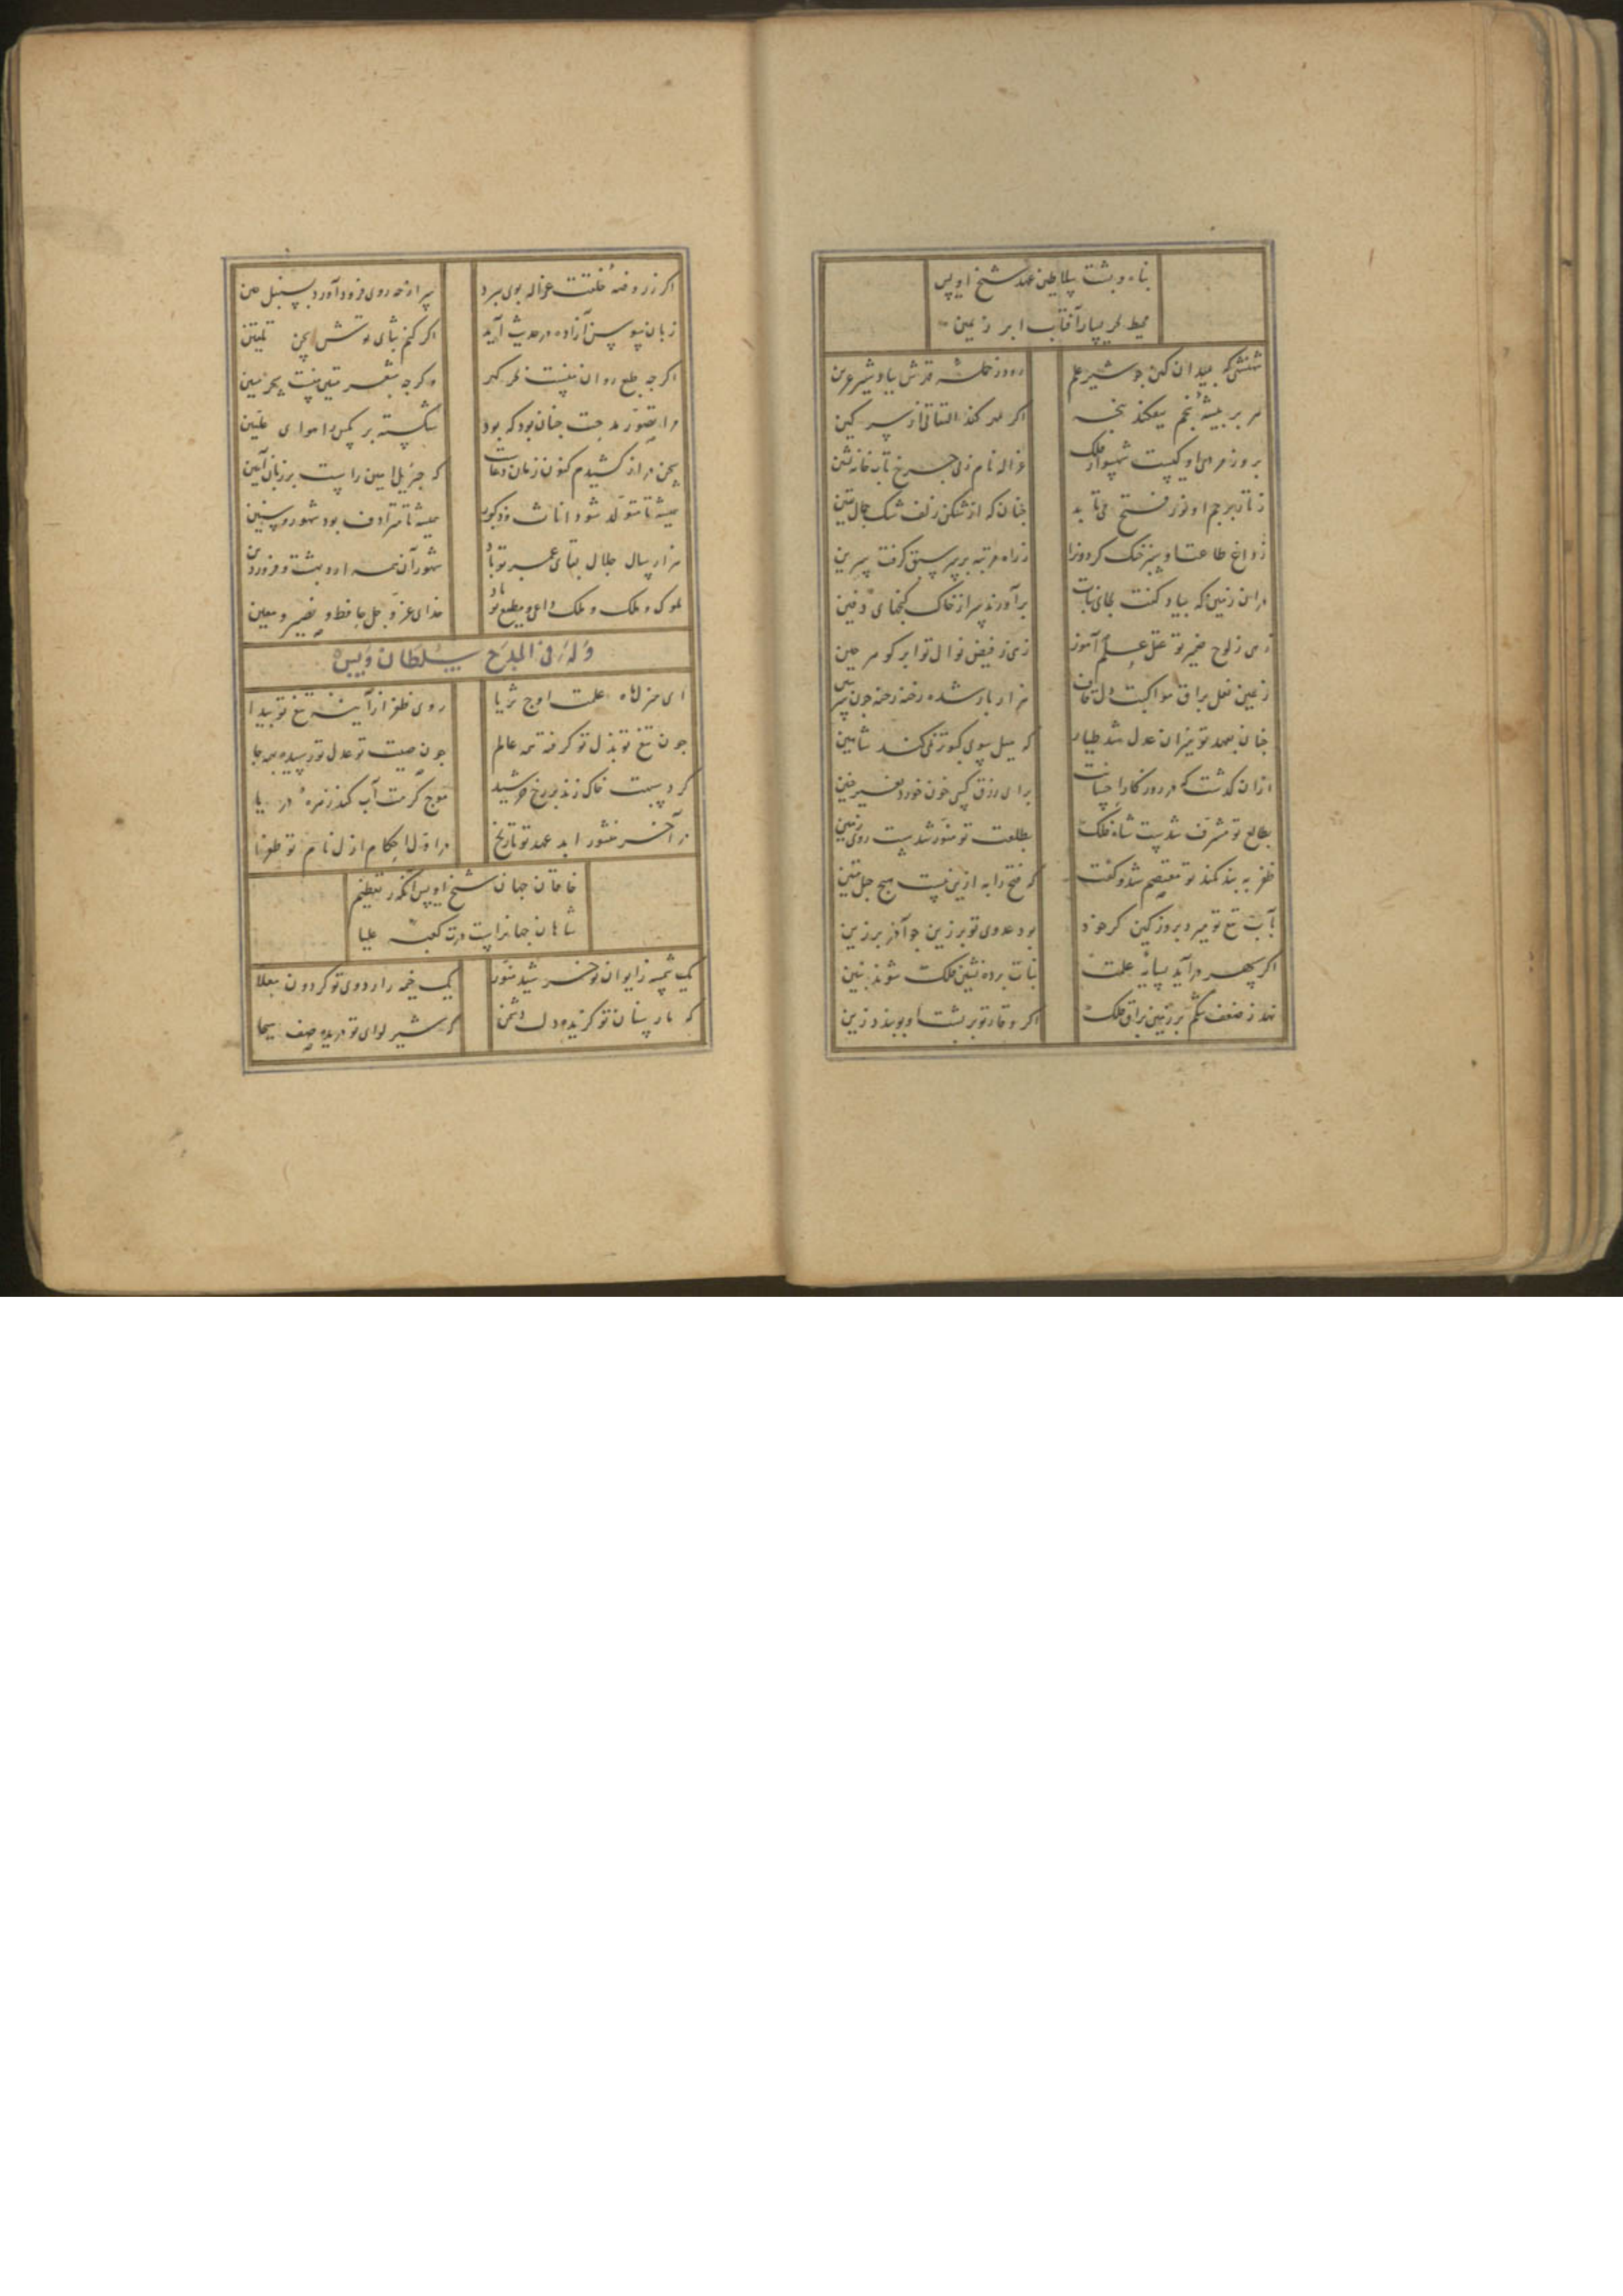 پناه و پشت سلاطین عهد شیخ اویس
محیط بخر یسار آفتاب ابر زمین
شهنشهی که بمیدان کین چو شیر علم
رود ز حمله قدرش بباد شیر عرین
هژبر بیشه انجم بیفکند پنجه
اگر بدر کند التفاتی از سر کین
بروز مردی او کیست شهسوار فلک
غزاله نام زنی چرخ تاب خانه نشین
ز تاب پرچم او نور فتح می تابد
چنان که از شکن زلف شب جمال
ز داغ طاعت او سبز خنک گردونرا
ز راه مرتبه بر سر سبق گرفت سرین
در آن زمین که بیاد کفت بجای نبات
برآورند سر از خاک گنجهای دفین
زهی ز لوح ضمیر تو عقل علم آموز
زهی ز فیض نوال تو ابر گوهر چین
ز عین نعل براق مواکبت دل قاف
هزار بار شده رخنه رخنه چون سر سین
چنان بعهد تو میزان عدل شد طیار
که میل سوی کبوتر نمی کند شاهین
از آن گذشت که در روزگار احسانت
برای رزق کسی خون خورد بغیر جنین
بطالع تو مشرف شدست شاه فلک
بطلعت تو منور شدست روی زمین
ظفر به بند کمند تو معتصم شد و گفت
که فتح را به ازین نیست هیچ حبل متین
بآب تیغ تو میرد بروز کین گر خود
بود عدوی تو بر زین چو آذر برزین
اگر سپهر درآید بسایه علمت
بنات پرده نشین فلک شوند بنین
نهد ز ضعف شکم بر زمین براق فلک
اگر وقار تو بر پشت او ببندد زین
اگر ز روضه خلقت غزاله بوی برد
سر از چه روی فرود آورد بسنبل چین
زبان سوسن آزاده در حدیث آید
اگر کنم بثای تواش سخن تلقین
اگرچه طبع روان نیست بحر گهر
وگرچه شعر متین نیست سحر مبین
مرا تصور مدحت چنان بود که بود
شکسته پر مگس را هوای علیین
سخن دراز کشیدم کنون زمان دعاست
که جبرئیل امین راست بر زبان آمین
همیشه تا متولد شود اناث و ذکور
همیشه تا مترادف بود شهور و سنین
هزار سال جلال بقای عمر تو باد
شهور آن همه اردیبهشت و فروردین
ملوک و ملک و ملک داعی و مطیع تو باد
خدای عز و جل حافظ و نصیر و معین
وله فی المدح سلطان ویس
ای منزل ماه علمت اوج ثریا
روی ظفر از آینه تیغ تو پیدا
چون تیغ تو بذل تو گرفته همه عالم
چون صیت تو عدل تو رسیده همه جا
گرد سپهت خاک زند بر رخ خورشید
موج کرمت آب کند زهره دریا
در آخر منشور ابد عهد تو تاریخ
در اول احکام ازل نام تو طغرا
خاقان جهان شیخ اویس آنکه ز تعظیم
شاهان جهانراست درت کعبه علیا
یک شمسه ز ایوان تو خورشید منور
یک خیمه ز اردوی تو گردون معلا
که مار سنان تو گزیده دل دشمن
گه شیر لوای تو دریده صف هیجا